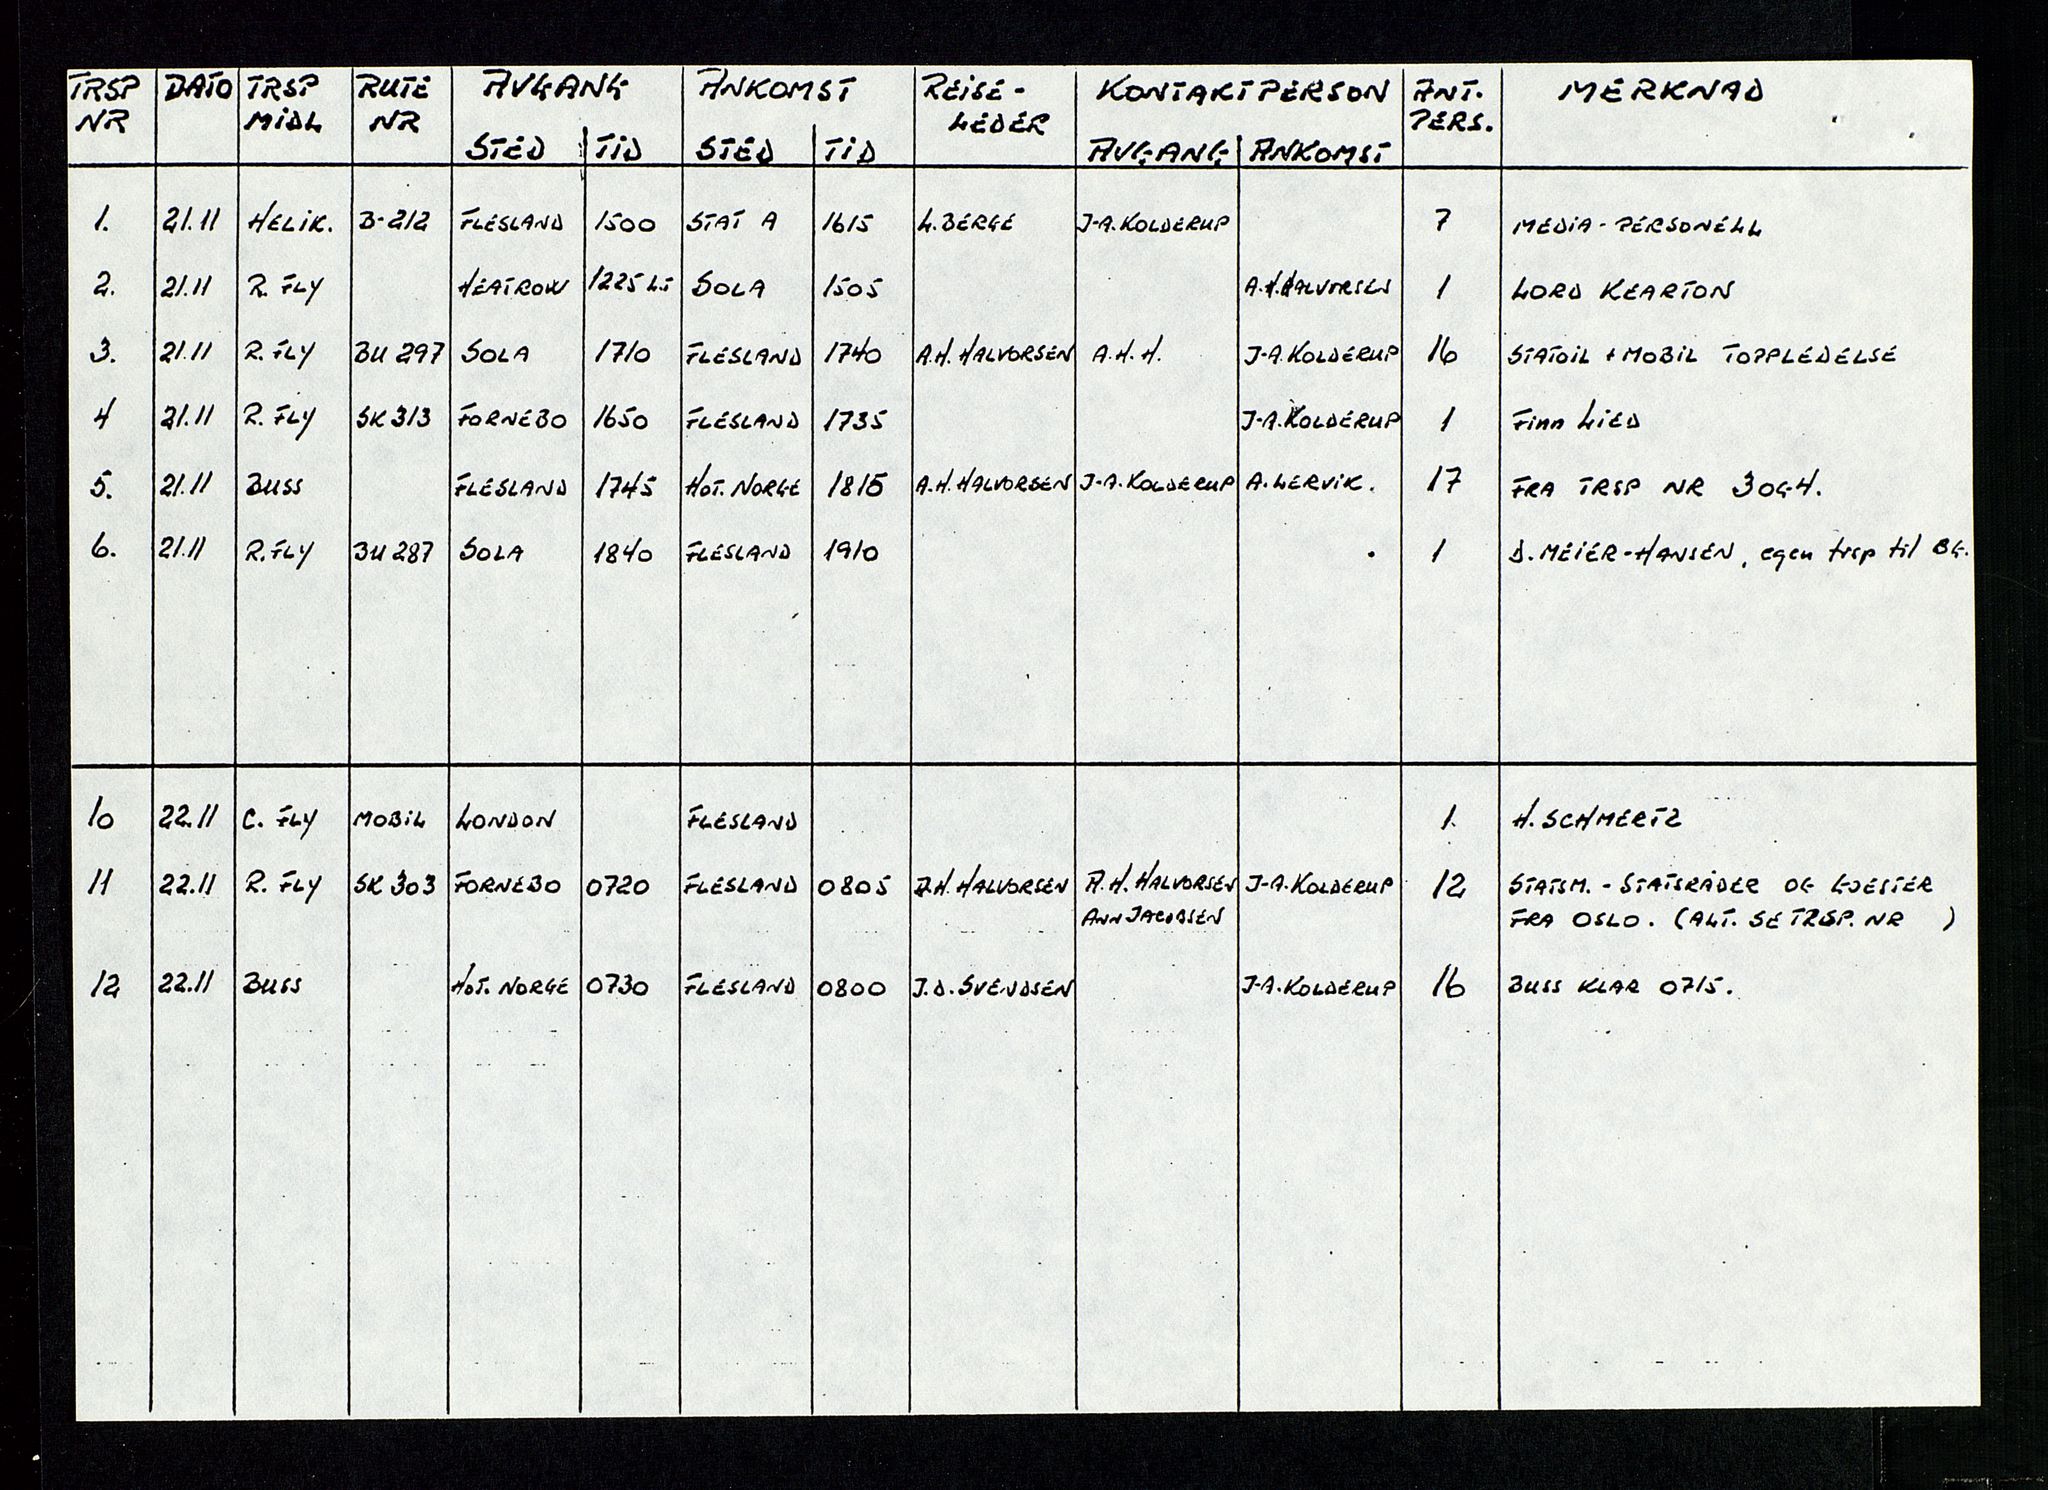 TRSP NR | DATO | TRSP MIDL | RUTE NR | AVGANG STED | TID | ANKOMST STED | TID | REISE-LEDER | KONTAKTPERSON AVGANG | ANKOMST | ANT. PERS. | MERKNAD
1. 21.11 HELIK. B-212 FLESLAND 1500 STAT A 1615 L.BERGE J-A.KOLDERUP 7 MEDIA-PERSONELL
2. 21.11 R. FLY HEATROW 1225 LT SOLA 1505 A.H.HALVORSEN 1 LORD KEARTON
3. 21.11 R. FLY BU 297 SOLA 1710 FLESLAND 1740 A.H. HALVORSEN A.H.H. J-A.KOLDERUP 16 STATOIL + MOBIL TOPPLEDELSE
4 21.11 R. FLY SK 313 FORNEBO 1650 FLESLAND 1735 J-A.KOLDERUP 1 Finn LIED
5. 21.11 BUSS FLESLAND 1745 HOT. NORGE 1815 A.H. HALVORSEN J-A.KOLDERUP A.LERVIK. 17 FRA TRSP NR 3 OG 4.
6. 21.11 R.FLY BU 287 SOLA 1840 FLESLAND 1910 1 D. MEIER-HANSEN, egen trsp til BG.
10 22.11 C. FLY MOBIL LONDON FLESLAND 1. H. SCHMERTZ
11 22.11 R. FLY SK 303 FORNEBO 0720 FLESLAND 0805 A.H. HALVORSEN A.H. HALVORSEN J-A.KOLDERUP 12 STATSM.-STATSRÅDER OG GJESTER
ANN JACOBSEN FRA OSLO. (ALT. SE TRSP. NR )
12 22.11 BUSS HOT. NORGE 0730 FLESLAND 0800 J.D. SVENDSEN J-A.KOLDERUP 16 BUSS KLAR 0715.